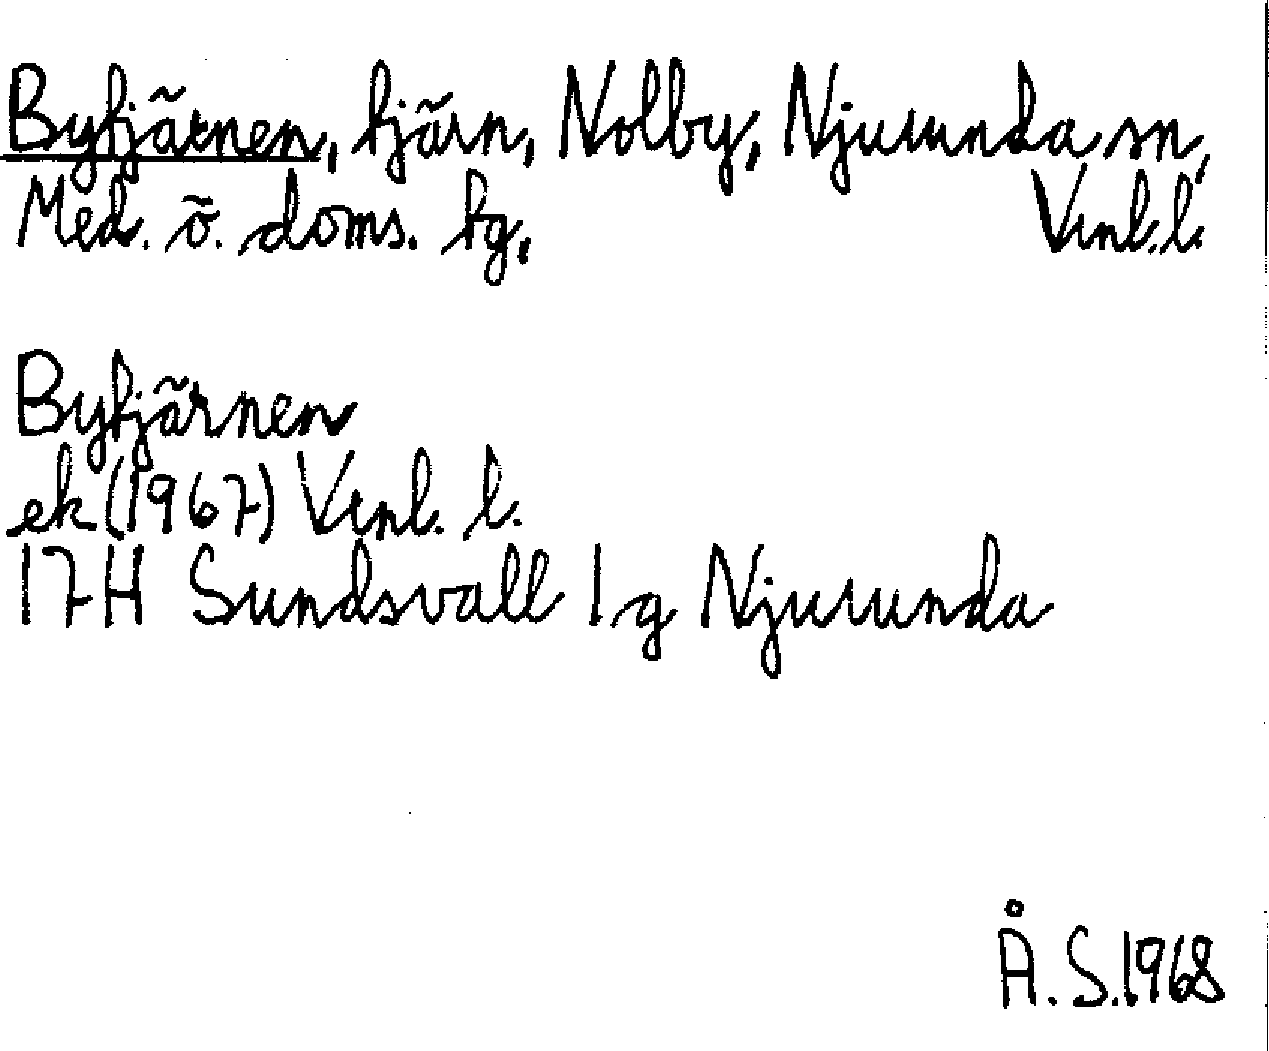 Bytjärnen, tjärn, Nolby, Njurunda sn,
Med. ö. doms. tg, Vnl.l.
Bytjärnen
ek (1967) Vnl. l.
17H Sundsvall 1g Njurunda
Å.S.1968